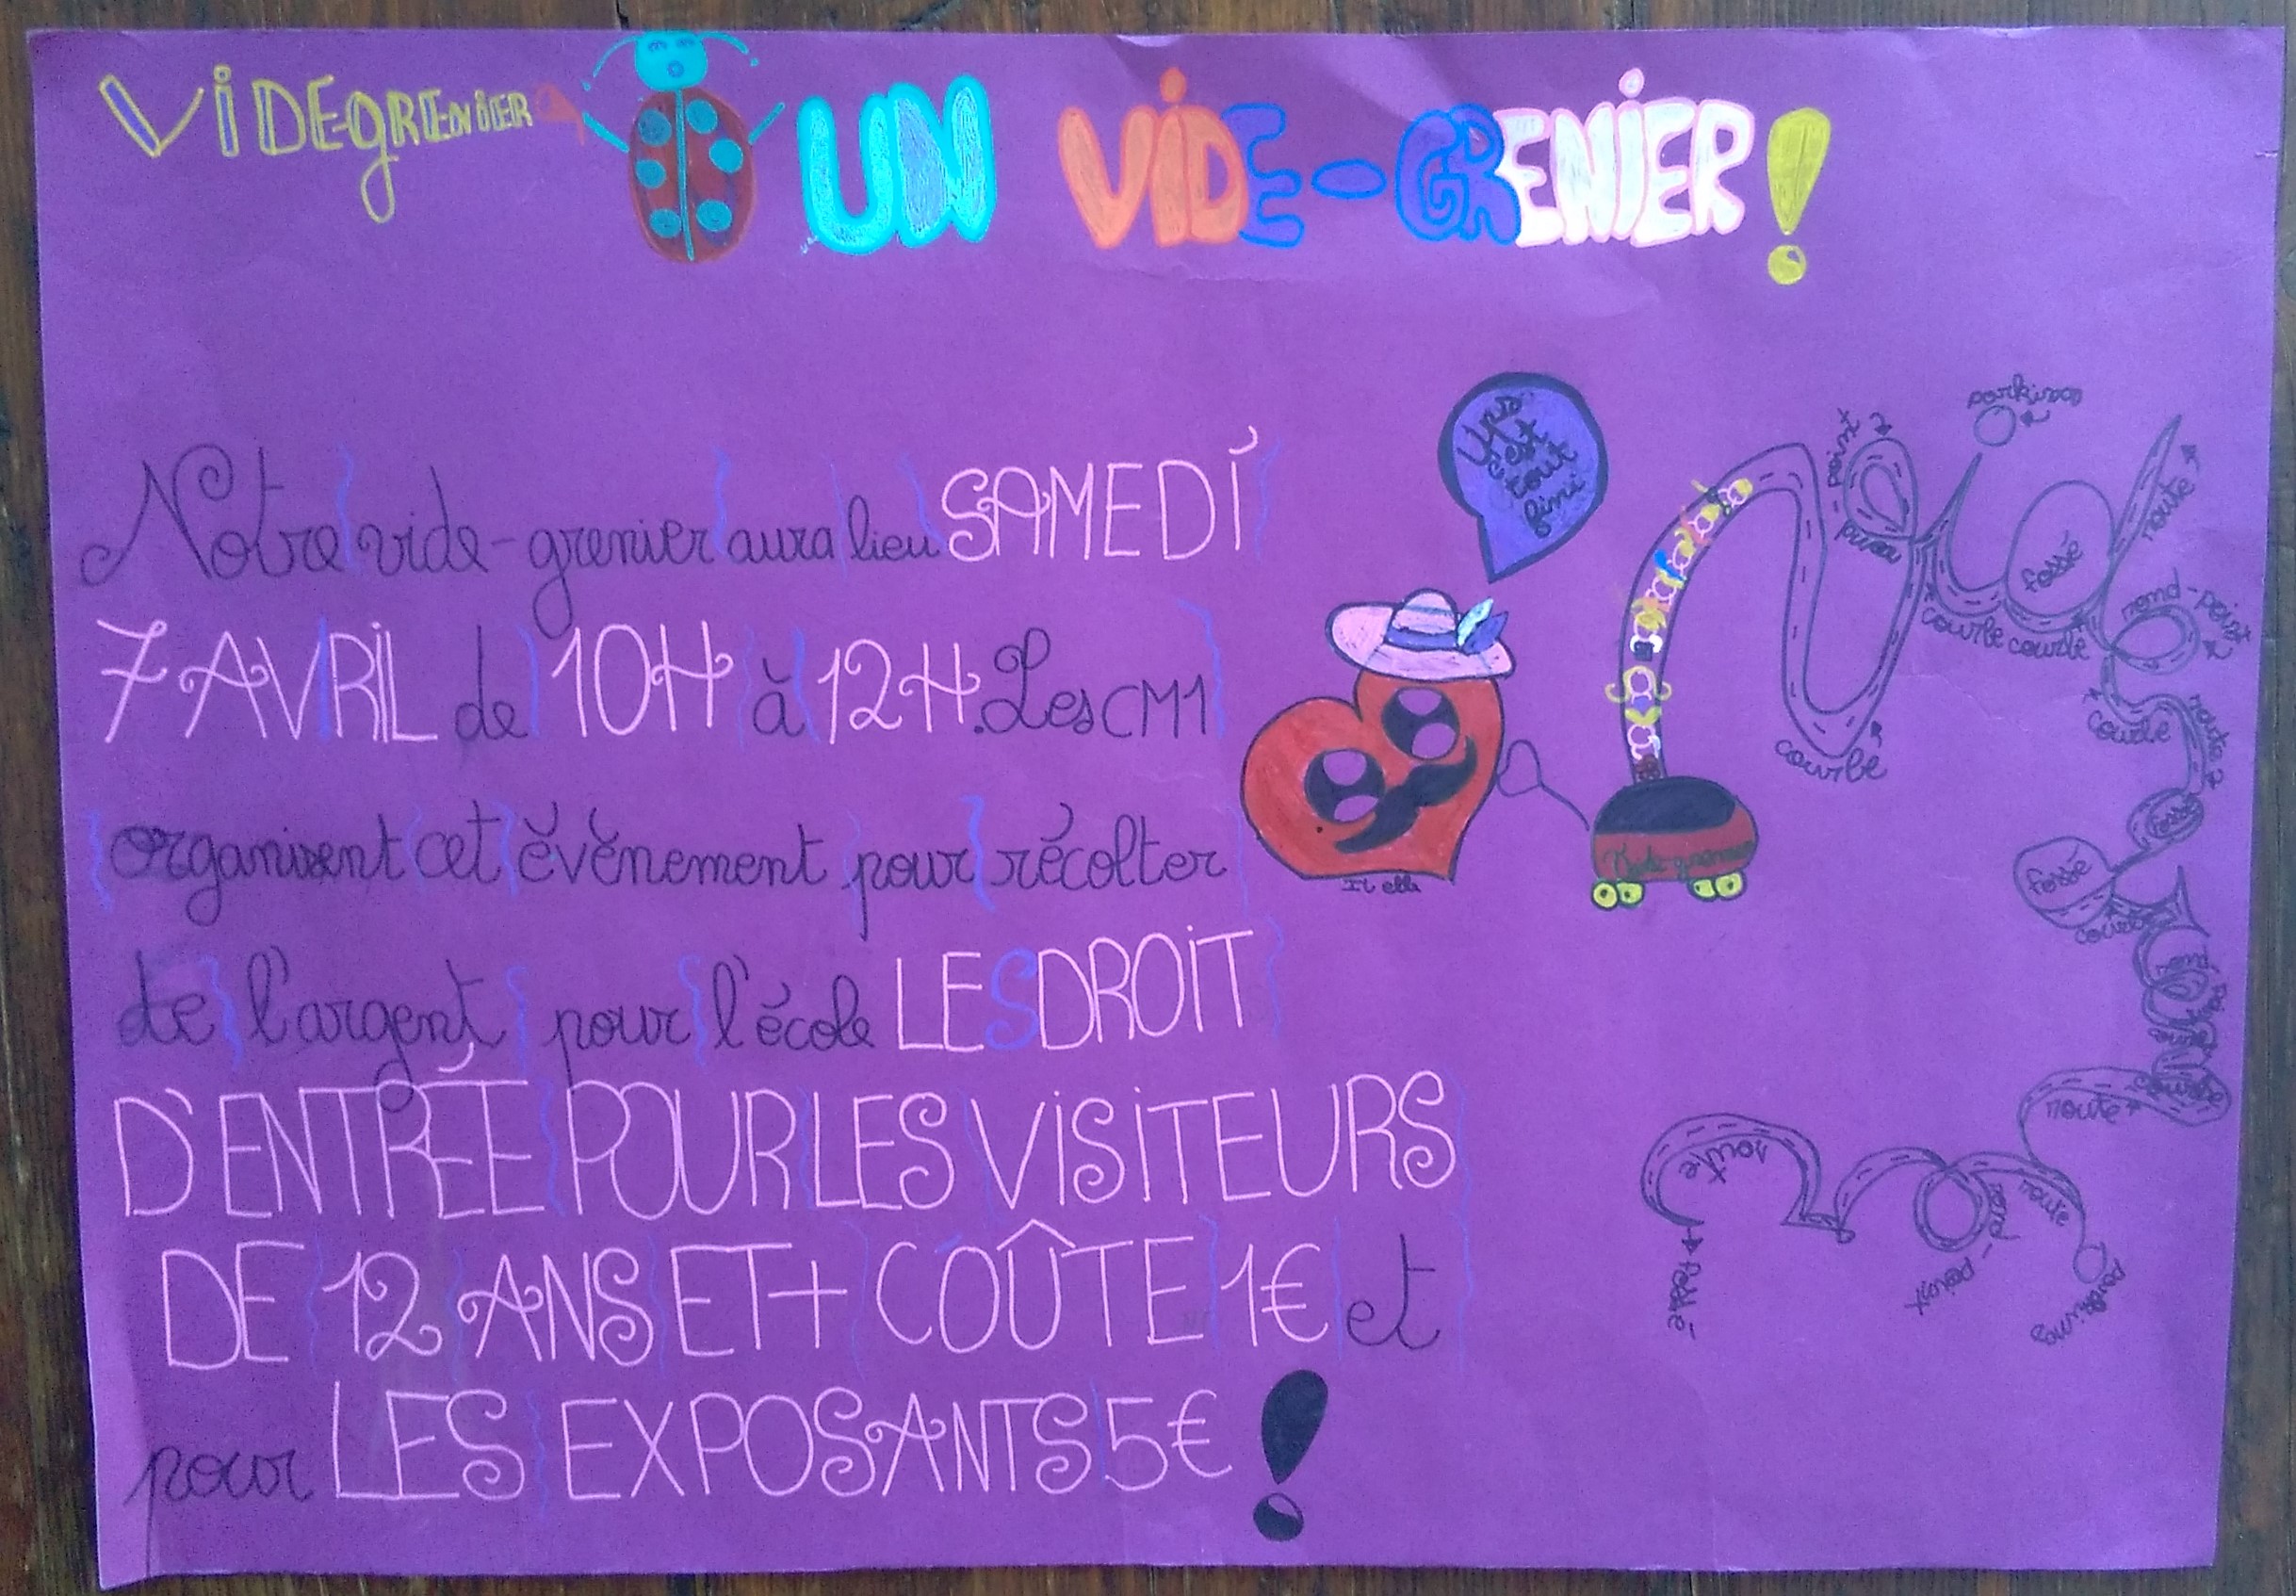 VIDEGRENIER UN VIDE-GRENIER!
Notre vide-grenier aura lieu SAMEDI
7 AVRIL de 10H à 12H. Les CM1
organisent cet évènement pour récolter
de l'argent pour l'école LE DROIT
D'ENTRÉE POUR LES VISITEURS
DE 12 ANS ET + COÛTE 1€ et
pour LES EXPOSANTS 5€ !
c'est
tout
fini
parking
point
route
fossé
rond-point
courbe courbe
courbe
courbe
route
fossé
fossé
route
route
route
rond-
point
parking
fossé